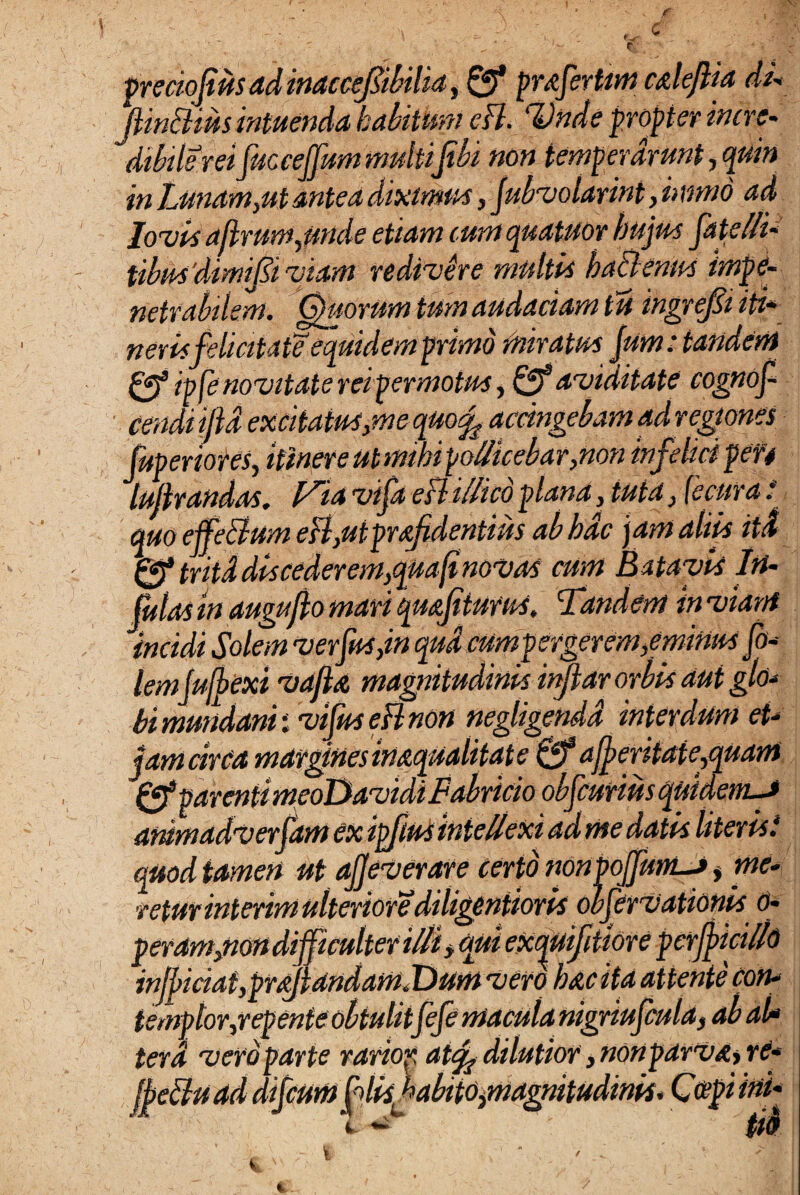 preciosius ad inaccessibilia, & præsertim cælestia di-
stinctius intuenda habitum est. Unde propter incre-
dibilẽ rei successum multi sibi non temperârunt, quin
in Lunam, ut antea diximus, subvolarint, immò ad
Iovis astrum, unde etiam cum quatuor hujus satelli-
tibus dimissi viam redivêre multis hactenus impe-
netrabilem. Quorum tum audaciam tũ ingressi iti-
neris felicitatẽ equidem primò miratus sum: tandem
& ipse novitate rei permotus, & aviditate cognos-
cendi istâ excitatus, me quoq; accingebam ad regiones
superiores, itinere ut mihi pollicebar, non infelici per-
lustrandas. Via visa est illicò plana, tuta, secura:
quo effectum est, ut præsidentiùs ab hâc jam aliis itâ
& tritâ discederem, quasi novas cum Batavis In-
sulas in augusto mari quæsiturus. Tandem in viam
incidi Solem versus, in quâ cum pergerem, eminus so-
lem suspexi vastæ magnitudinis instar orbis aut glo-
bi mundani: visus est non negligendâ interdum et-
jam circa margines inæqualitate & asperitate, quam
& parenti meo Davidi Fabricio obscuriùs quidem
animadversam ex ipsius intellexi ad me datis literis:
quod tamen ut asseverare certò non possum, me-
retur interim ulteriorẽ diligentioris observationis o-
peram, non difficulter illi, qui exquisitiore perspicillo
inspiciat, præstandam. Dum verò hæc ita attentè con-
templor, repente obtulit sese macula nigriuscula, ab al-
terâ verò parte rarior atq; dilutior, non parvæ, re-
spectu ad discum solis habito, magnitudinis. Cœpi ini-
tiò